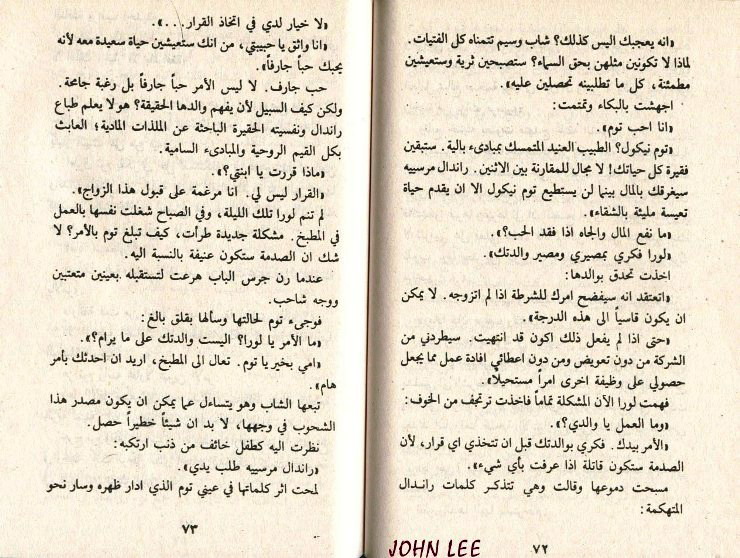 «انه يعجبك اليس كذلك؟ شاب وسيم تتمناه كل الفتيات.
لماذا لا تكونين مثلهن بحق السماء؟ ستصبحين ثرية وستعيشين
مطمئنة، كل ما تطلبينه تحصلين عليه».
اجهشت بالبكاء وتمتمت:
«انا احب توم».
«توم نيكول؟ الطبيب العنيد المتمسك بمبادىء بالية. ستبقين
فقيرة كل حياتك! لا مجال للمقارنة بين الاثنين. راندال مرسييه
سيغرقك بالمال بينما لن يستطيع توم نيكول الا ان يقدم حياة
تعيسة مليئة بالشقاء».
«ما نفع المال والجاه اذا فقد الحب؟».
«لورا فكري بمصيري ومصير والدتك».
اخذت تحدق بوالدها:
«اتعتقد انه سيفضح امرك للشرطة اذا لم اتزوجه. لا يمكن
ان يكون قاسياً الى هذه الدرجة».
«حتى اذا لم يفعل ذلك اكون قد انتهيت. سيطردني من
الشركة من دون تعويض ومن دون اعطائي افادة عمل مما يجعل
حصولي على وظيفة اخرى امراً مستحيلاً».
فهمت لورا الآن المشكلة تماماً فاخذت ترتجف من الخوف:
«وما العمل يا والدي؟».
«الأمر بيدك. فكري بوالدتك قبل ان تتخذي اي قرار، لأن
الصدمة ستكون قاتلة اذا عرفت بأي شيء».
مسحت دموعها وقالت وهي تتذكر كلمات راندال
المتهكمة:
٧٢
«لا خيار لدي في اتخاذ القرار...».
«انا واثق يا حبيبتي، من انك ستعيشين حياة سعيدة معه لأنه
يحبك حباً جارفاً».
حب جارف. لا ليس الأمر حباً جارفاً بل رغبة جامحة.
ولكن كيف السبيل لأن يفهم والدها الحقيقة؟ هو لا يعلم طباع
راندال ونفسيته الحقيرة الباحثة عن الملذات المادية؛ العابث
بكل القيم الروحية والمبادىء السامية.
«ماذا قررت يا ابنتي؟».
«القرار ليس لي. انا مرغمة على قبول هذا الزواج».
لم تنم لورا تلك الليلة، وفي الصباح شغلت نفسها بالعمل
في المطبخ. مشكلة جديدة طرأت، كيف تبلغ توم بالأمر؟ لا
شك ان الصدمة ستكون عنيفة بالنسبة اليه.
عندما رن جرس الباب هرعت لتستقبله بعينين متعبتين
ووجه شاحب.
فوجىء توم لحالتها وسألها بقلق بالغ:
«ما الأمر يا لورا؟ اليست والدتك على ما يرام؟».
«امي بخير يا توم. تعال الى المطبخ، اريد ان احدثك بأمر
هام».
تبعها الشاب وهو يتساءل عما يمكن ان يكون مصدر هذا
الشحوب في وجهها، لا بد ان شيئاً خطيراً حصل.
نظرت اليه كطفل خائف من ذنب ارتكبه:
«راندال مرسييه طلب يدي».
لمحت اثر كلماتها في عيني توم الذي ادار ظهره وسار نحو
٧٣
JOHN LEE